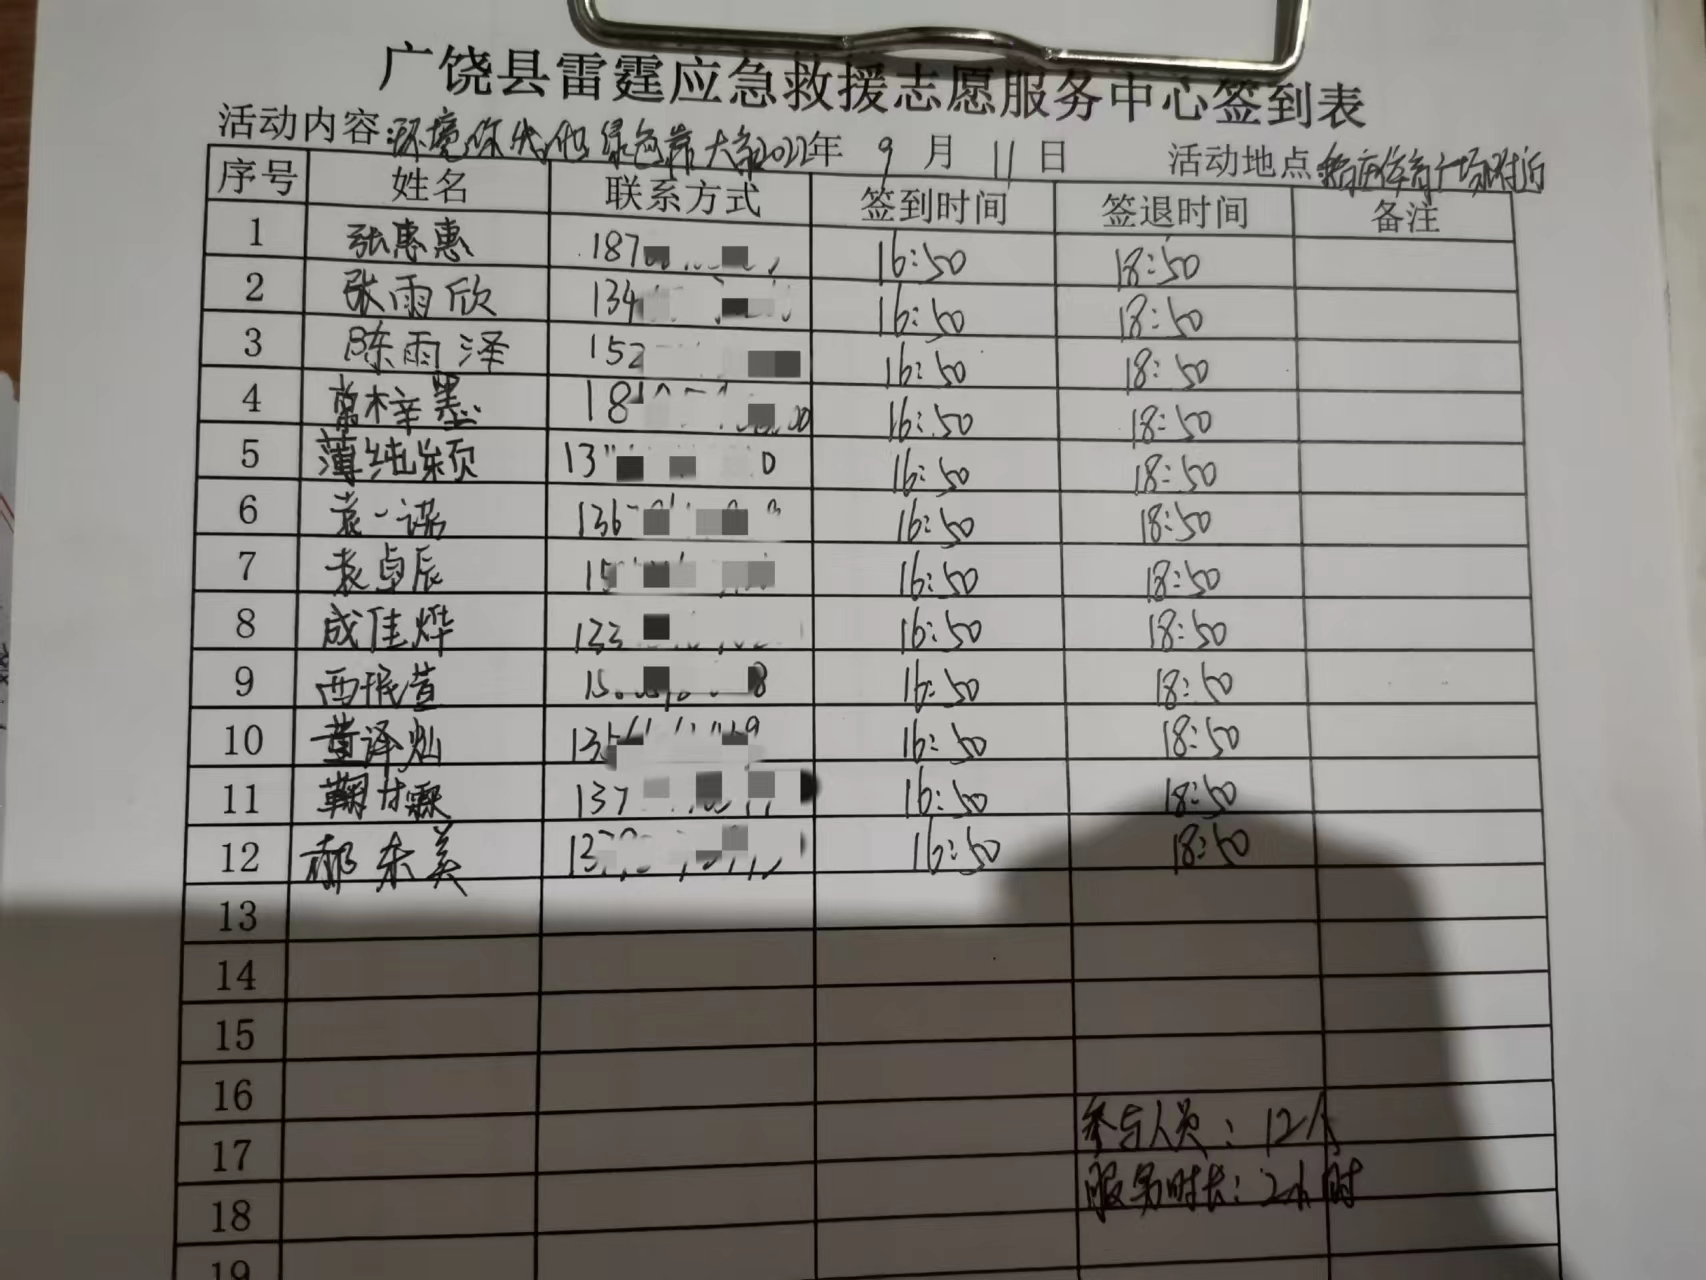 广饶县雷霆应急救援志愿服务中心签到表
活动内容:环境你我他 绿色靠大家2022年 9 月 11 日 活动地点 体育广场附近
序号 姓名 联系方式 签到时间 签退时间 备注
1 张惠惠 187 16:50 18:50
2 张雨欣 134 16:50 18:50
3 陈雨泽 152 16:50 18:50
4 常梓墨 18 16:50 18:50
5 薄纯颖 13 0 16:50 18:50
6 袁一诺 136 16:50 18:50
7 袁卓辰 15 16:50 18:50
8 成佳烨 133 16:50 18:50
9 西珉萱 15 8 16:50 18:50
10 董泽灿 135 9 16:50 18:50
11 鞠甘霖 137 16:50 18:50
12 郝东美 137 16:50 18:50
13
14
15
16
参与人员：12人
17
服务时长：2小时
18
19